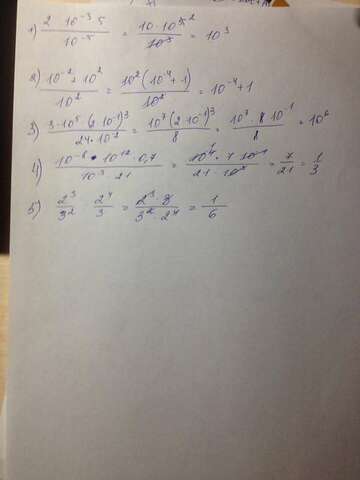 1) \frac{2 \cdot 10^{-3} \cdot 5}{10^{-5}} = \frac{10 \cdot 10^{5}}{10^{3}} = 10^{3}
2) \frac{10^{-2} + 10^{2}}{10^{2}} = \frac{10^{2}(10^{-4}+1)}{10^{2}} = 10^{-4}+1
3) \frac{3 \cdot 10^{5} (2 \cdot 10^{-1})^{3}}{24 \cdot 10^{-2}} = \frac{10^{7}(2 \cdot 10^{-1})^{3}}{8} = \frac{10^{7} \cdot 8 \cdot 10^{-1}}{8} = 10^{6}
4) \frac{10^{-8} \cdot 10^{12} \cdot 0,7}{10^{3} \cdot 21} = = \frac{7}{21} = \frac{1}{3}
5) \frac{2^{3}}{3^{2}} \cdot \frac{2^{4}}{3} = \frac{2^{3} \cdot 3}{3^{2} \cdot 2^{4}} = \frac{1}{6}